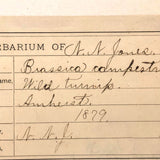 RBARIUM OF N. N. Jones.
Brassica campestr
ame, Wild turnip.
Amherst.
1879.
N. N. J.